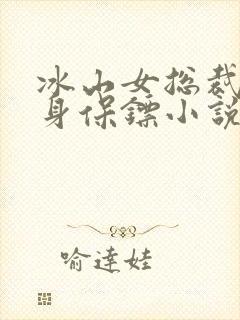 冰山女总裁
身保镖小説
喻達娃